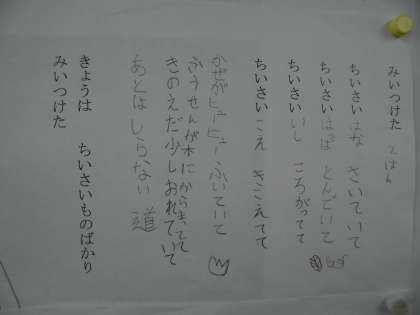 みいつけた てほん
ちいさい はな さいていて
ちいさい はっぱ とんでいて
ちいさい いし ころがってて
ちいさい こえ きこえてて
かぜが ビュービュー ふいていて
ふうせんが木に からまってて
きのえだ少し おれていて
あとは しらない 道
きょうは ちいさいものばかり
みいつけた